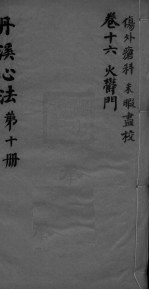 傷外瘡科未暇盡校
卷十六 火欝門
丹溪心法 第十册